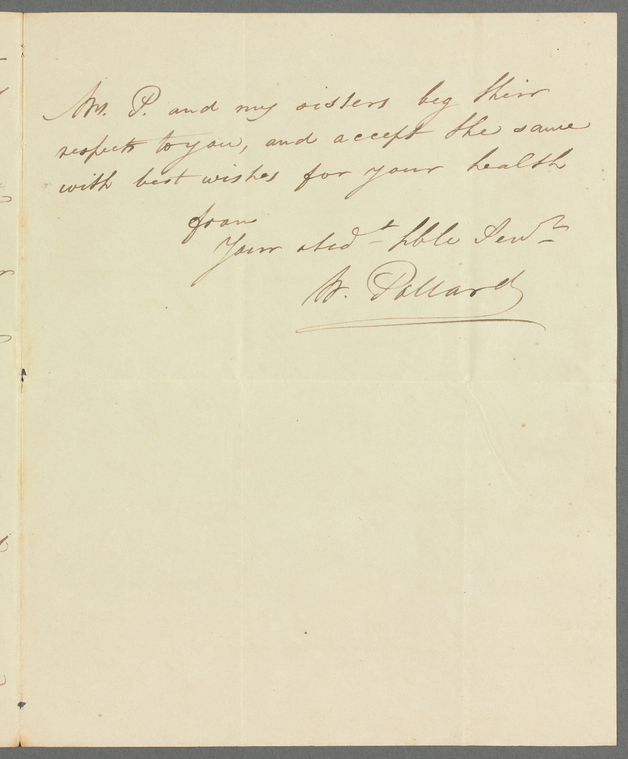 Mrs. P. and my sisters beg their
respects to you, and accept the same
with best wishes for your health
from
Your obedt hble Servt
W. Pollard